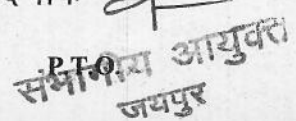 P.T.O.
संभागीय आयुक्त
जयपुर